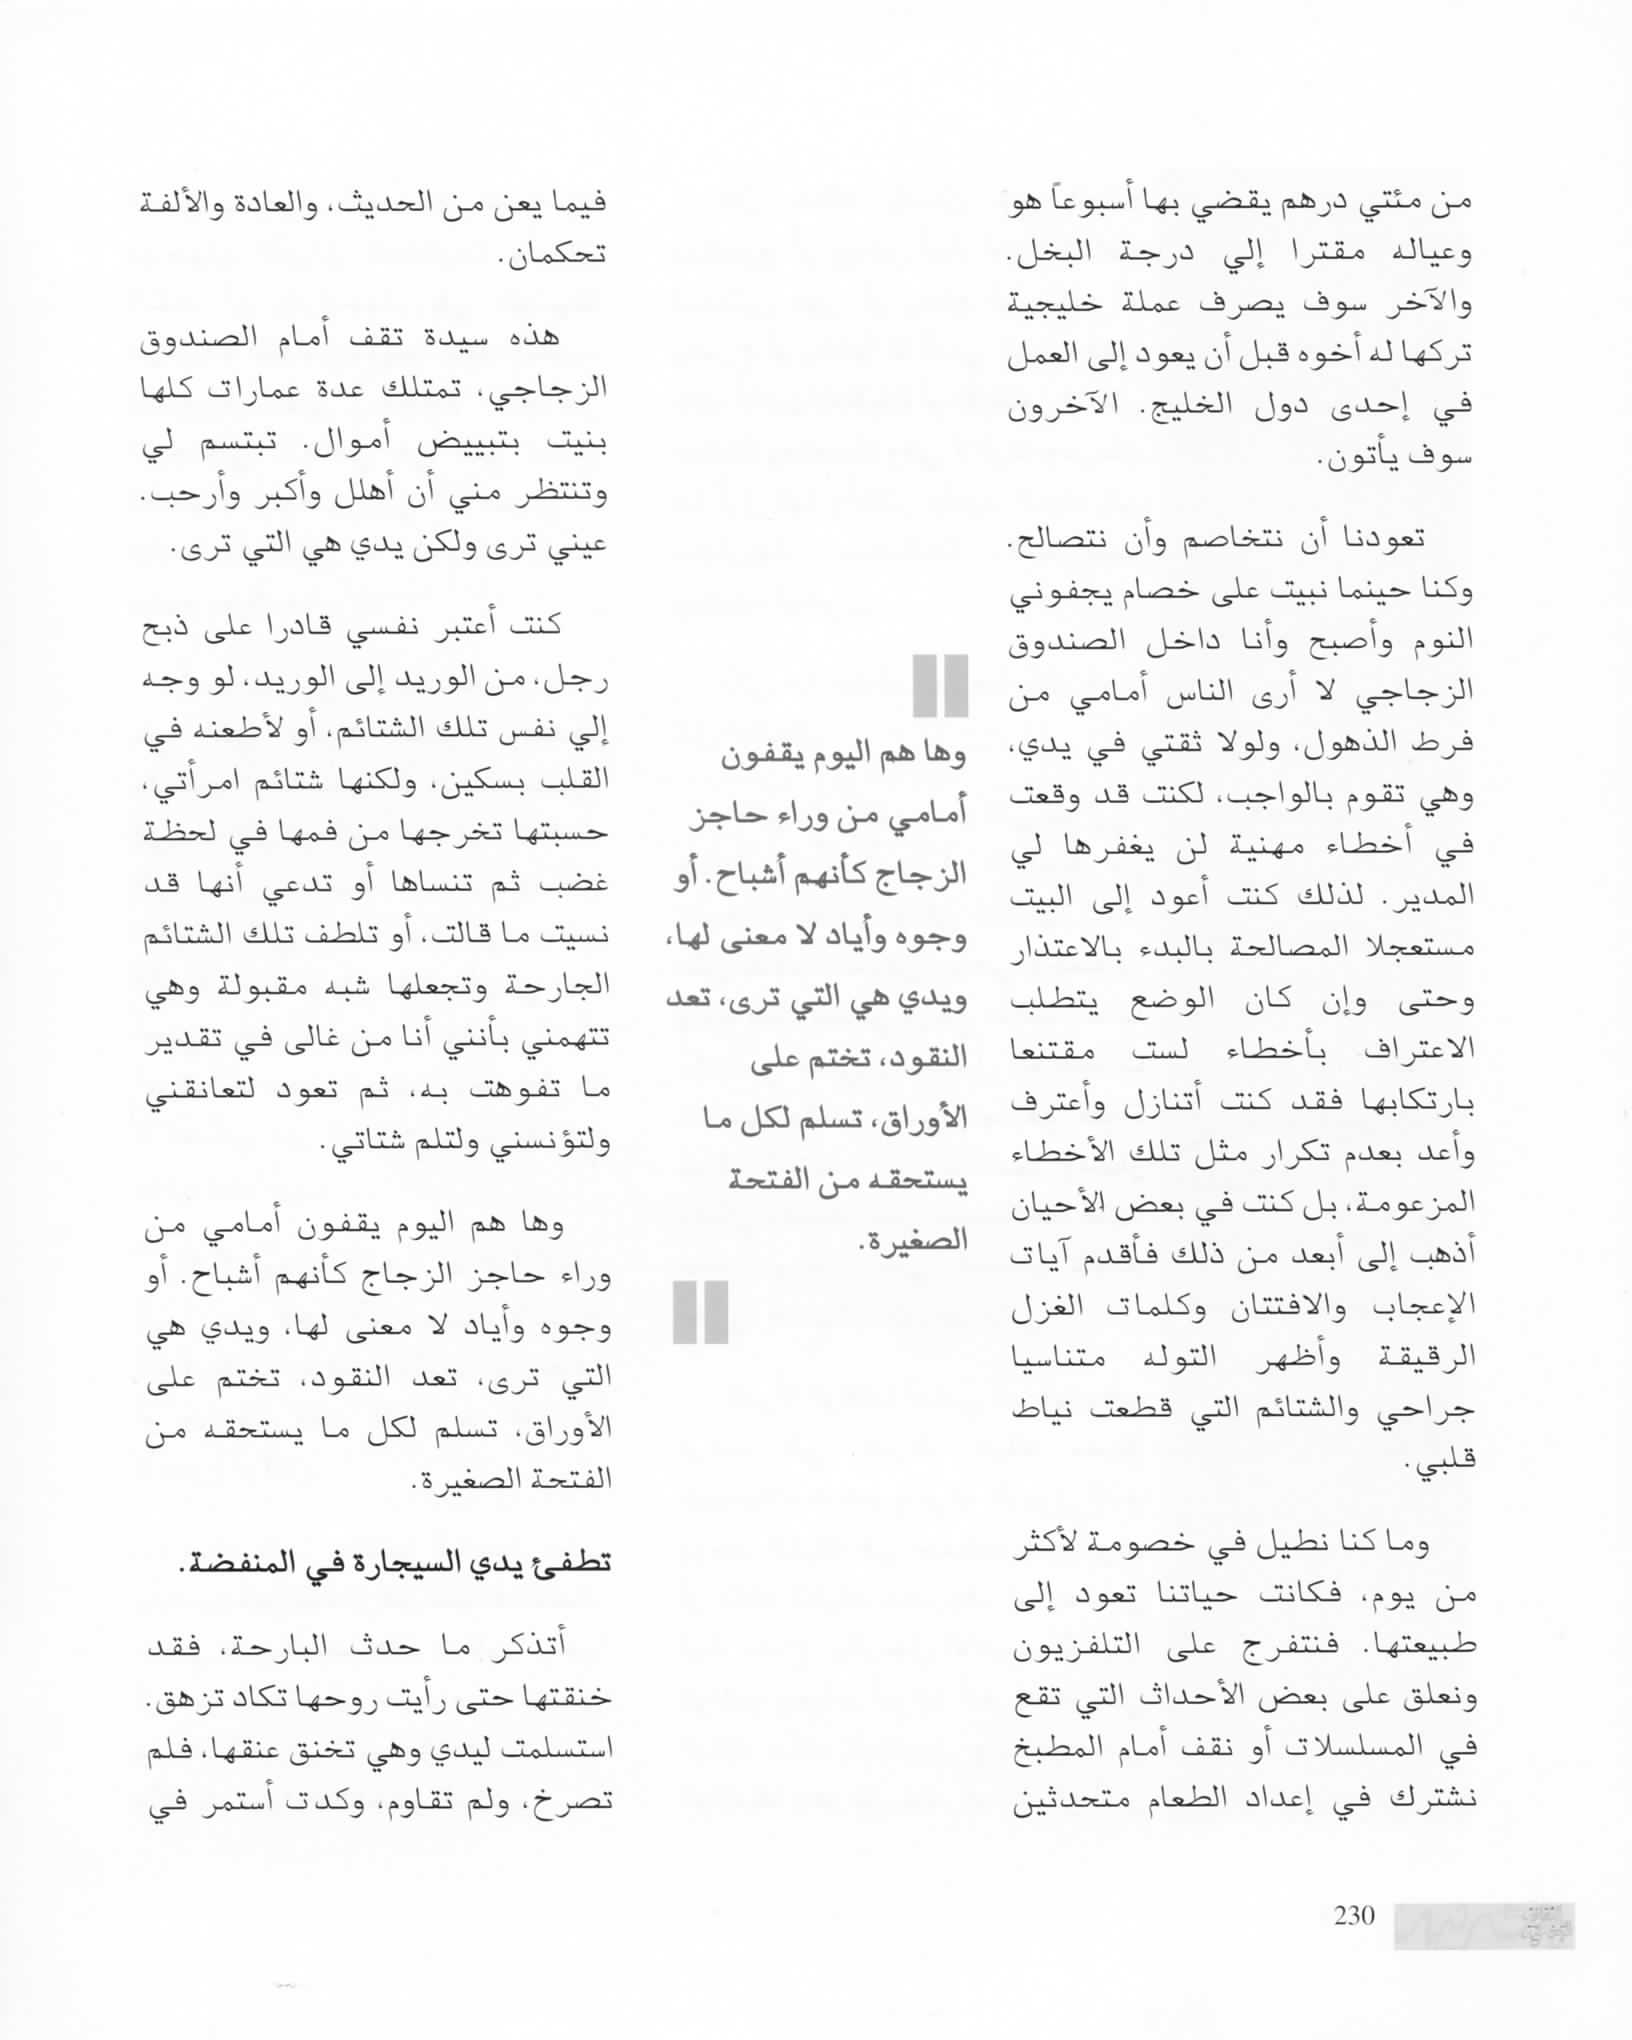 من مئتي درهم يقضي بها أسبوعاً هو
وعياله مقترا إلي درجة البخل.
والآخر سوف يصرف عملة خليجية
تركها له أخوه قبل أن يعود إلى العمل
في إحدى دول الخليج. الآخرون
سوف يأتون.
تعودنا أن نتخاصم وأن نتصالح.
وكنا حينما نبيت على خصام يجفوني
النوم وأصبح وأنا داخل الصندوق
الزجاجي لا أرى الناس أمامي من
فرط الذهول، ولولا ثقتي في يدي،
وهي تقوم بالواجب، لكنت قد وقعت
في أخطاء مهنية لن يغفرها لي
المدير. لذلك كنت أعود إلى البيت
مستعجلا المصالحة بالبدء بالاعتذار
وحتى وإن كان الوضع يتطلب
الاعتراف بأخطاء لست مقتنعا
بارتكابها فقد كنت أتنازل وأعترف
وأعد بعدم تكرار مثل تلك الأخطاء
المزعومة، بل كنت في بعض الأحيان
أذهب إلى أبعد من ذلك فأقدم آيات
الإعجاب والافتتان وكلمات الغزل
الرقيقة وأظهر التوله متناسيا
جراحي والشتائم التي قطعت نياط
قلبي.
وما كنا نطيل في خصومة لأكثر
من يوم، فكانت حياتنا تعود إلى
طبيعتها. فنتفرج على التلفزيون
ونعلق على بعض الأحداث التي تقع
في المسلسلات أو نقف أمام المطبخ
نشترك في إعداد الطعام متحدثين
وها هم اليوم يقفون
أمامي من وراء حاجز
الزجاج كأنهم أشباح. أو
وجوه وأياد لا معنى لها،
ويدي هي التي ترى، تعد
النقود، تختم على
الأوراق، تسلم لكل ما
يستحقه من الفتحة
الصغيرة.
فيما يعن من الحديث، والعادة والألفة
تحكمان.
هذه سيدة تقف أمام الصندوق
الزجاجي، تمتلك عدة عمارات كلها
بنيت بتبييض أموال. تبتسم لي
وتنتظر مني أن أهلل وأكبر وأرحب.
عيني ترى ولكن يدي هي التي ترى.
كنت أعتبر نفسي قادرا على ذبح
رجل، من الوريد إلى الوريد، لو وجه
إلي نفس تلك الشتائم، أو لأطعنه في
القلب بسكين، ولكنها شتائم امرأتي،
حسبتها تخرجها من فمها في لحظة
غضب ثم تنساها أو تدعي أنها قد
نسيت ما قالت، أو تلطف تلك الشتائم
الجارحة وتجعلها شبه مقبولة وهي
تتهمني بأنني أنا من غالى في تقدير
ما تفوهت به، ثم تعود لتعانقني
ولتؤنسني ولتلم شتاتي.
وها هم اليوم يقفون أمامي من
وراء حاجز الزجاج كأنهم أشباح. أو
وجوه وأياد لا معنى لها، ويدي هي
التي ترى، تعد النقود، تختم على
الأوراق، تسلم لكل ما يستحقه من
الفتحة الصغيرة.
تطفئ يدي السيجارة في المنفضة.
أتذكر ما حدث البارحة، فقد
خنقتها حتى رأيت روحها تكاد تزهق.
استسلمت ليدي وهي تخنق عنقها، فلم
تصرخ، ولم تقاوم، وكدت أستمر في
230